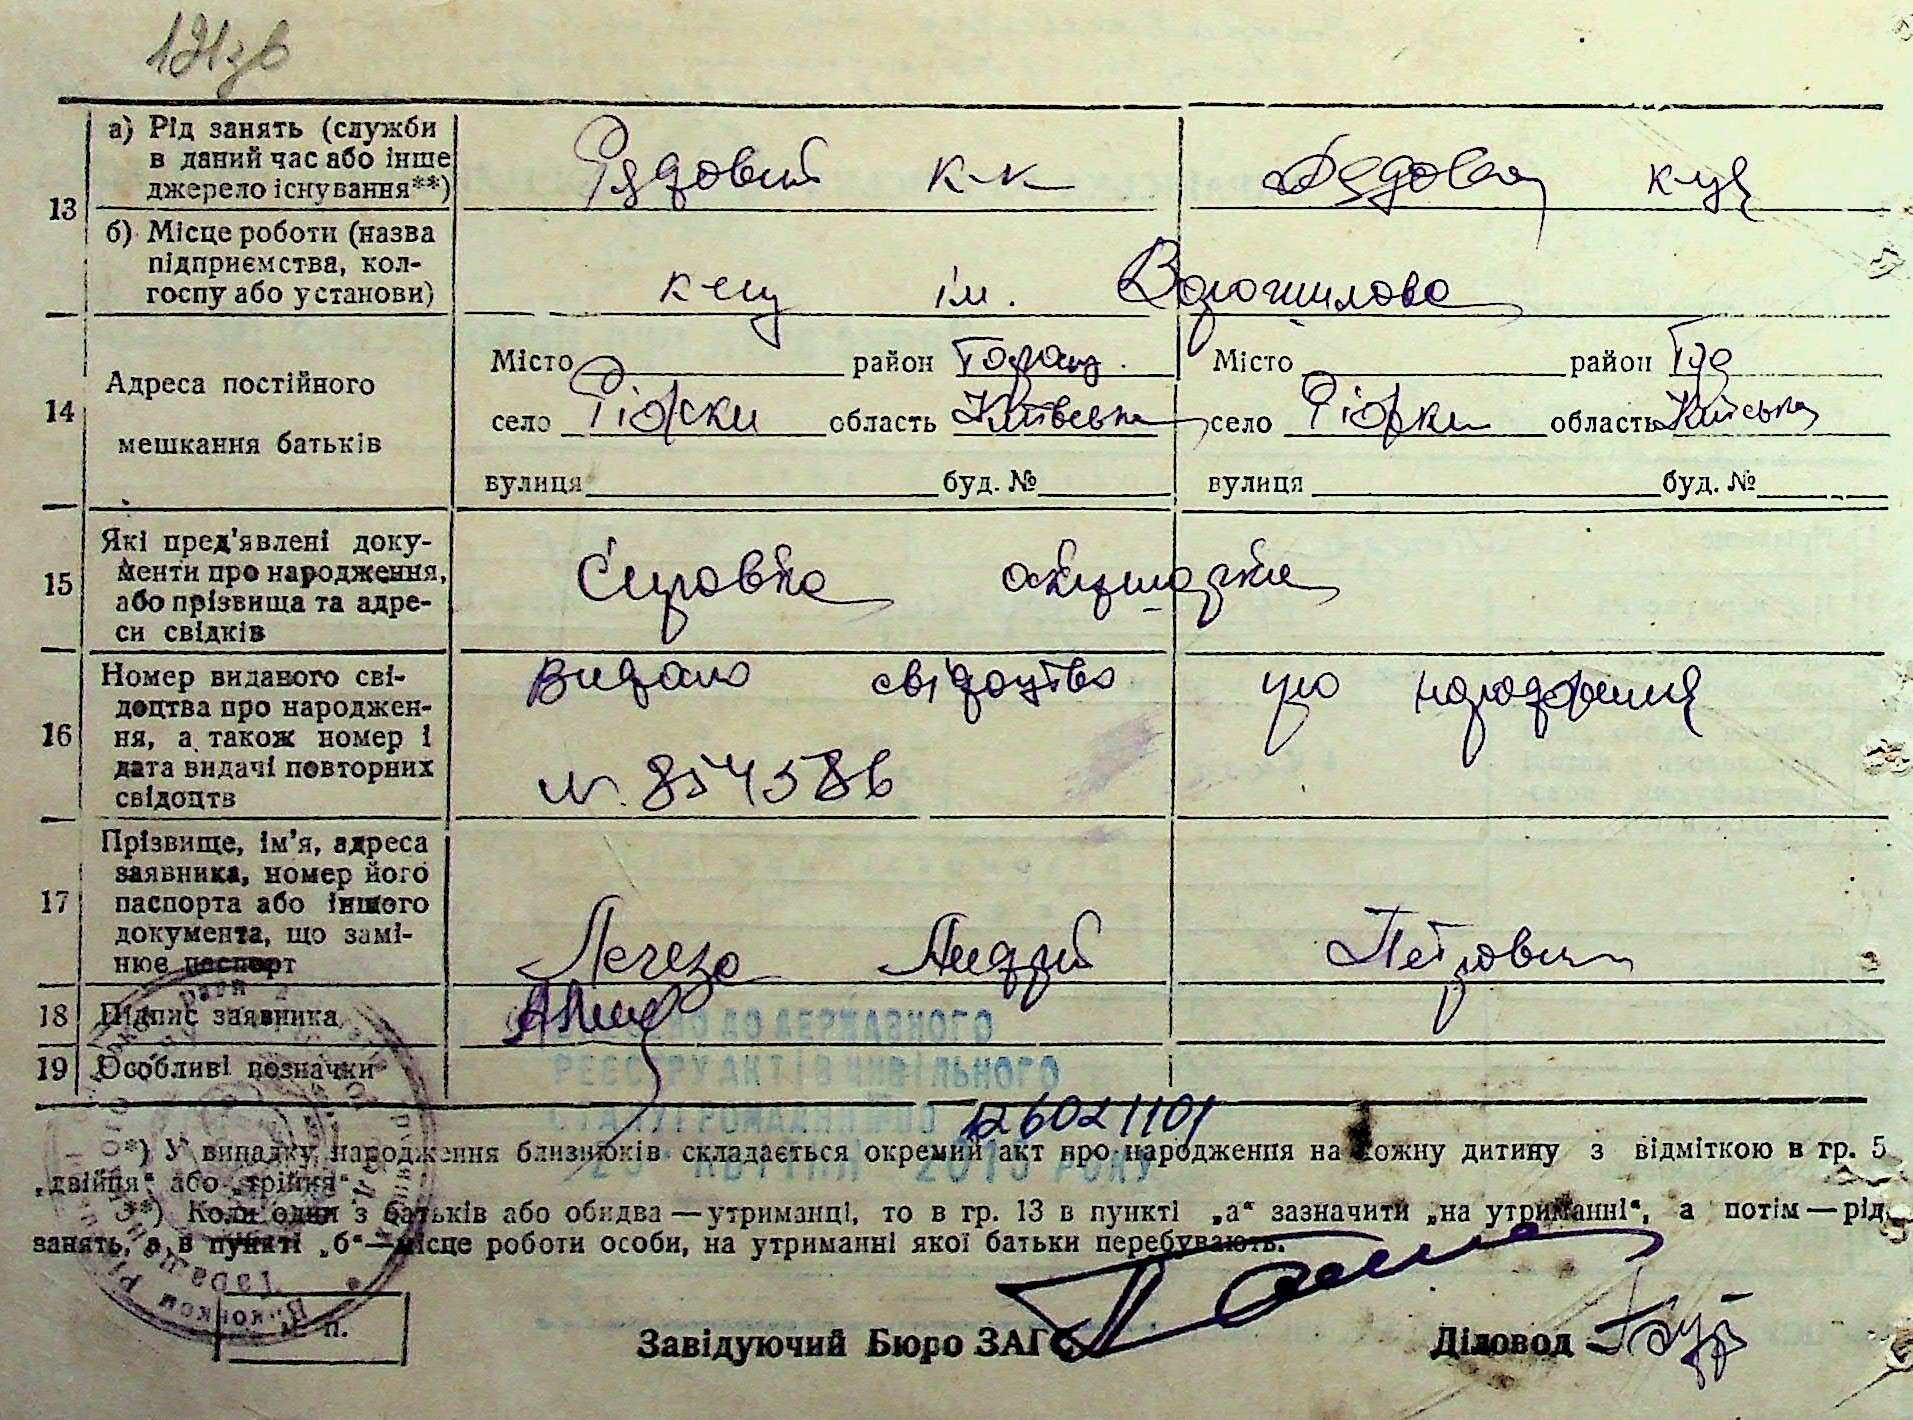 121зв
13 а) Рід занять (служби в даний час або інше джерело існування**) Рядовий к-к Рядова
б) Місце роботи (назва підприємства, колгоспу або установи) ім. Ворошилова
14 Адреса постійного мешкання батьків
Місто район Тараш. Місто район Тра
село Ріжки область Київська село Ріжки область Київська
вулиця буд. № вулиця буд. №
15 Які пред'явлені документи про народження, або прізвища та адреси свідків Справка акушерки
16 Номер виданого свідоцтва про народження, а також номер і дата видачі повторних свідоцтв Видано свідоцтво про народження
№ 854586
17 Прізвище, ім'я, адреса заявника, номер його паспорта або іншого документа, що замінює паспорт Легеза Андрій Петрович
18 Підпис заявника
19 Особливі позначки
ДО ДЕРЖАВНОГО
РЕЄСТРУ АКТІВ ЦИВІЛЬНОГО
СТАНУ ГРОМАДЯН ПО
126021101
*) У випадку народження близнюків складається окремий акт про народження на кожну дитину з відміткою в гр. 5
„двійня“ або „трійня“.
**) Коли один з батьків або обидва — утриманці, то в гр. 13 в пункті „а“ зазначити „на утриманні“, а потім — рід
занять, а в пункті „б“ — місце роботи особи, на утриманні якої батьки перебувають.
М. п.
Завідуючий Бюро ЗАГС Діловод